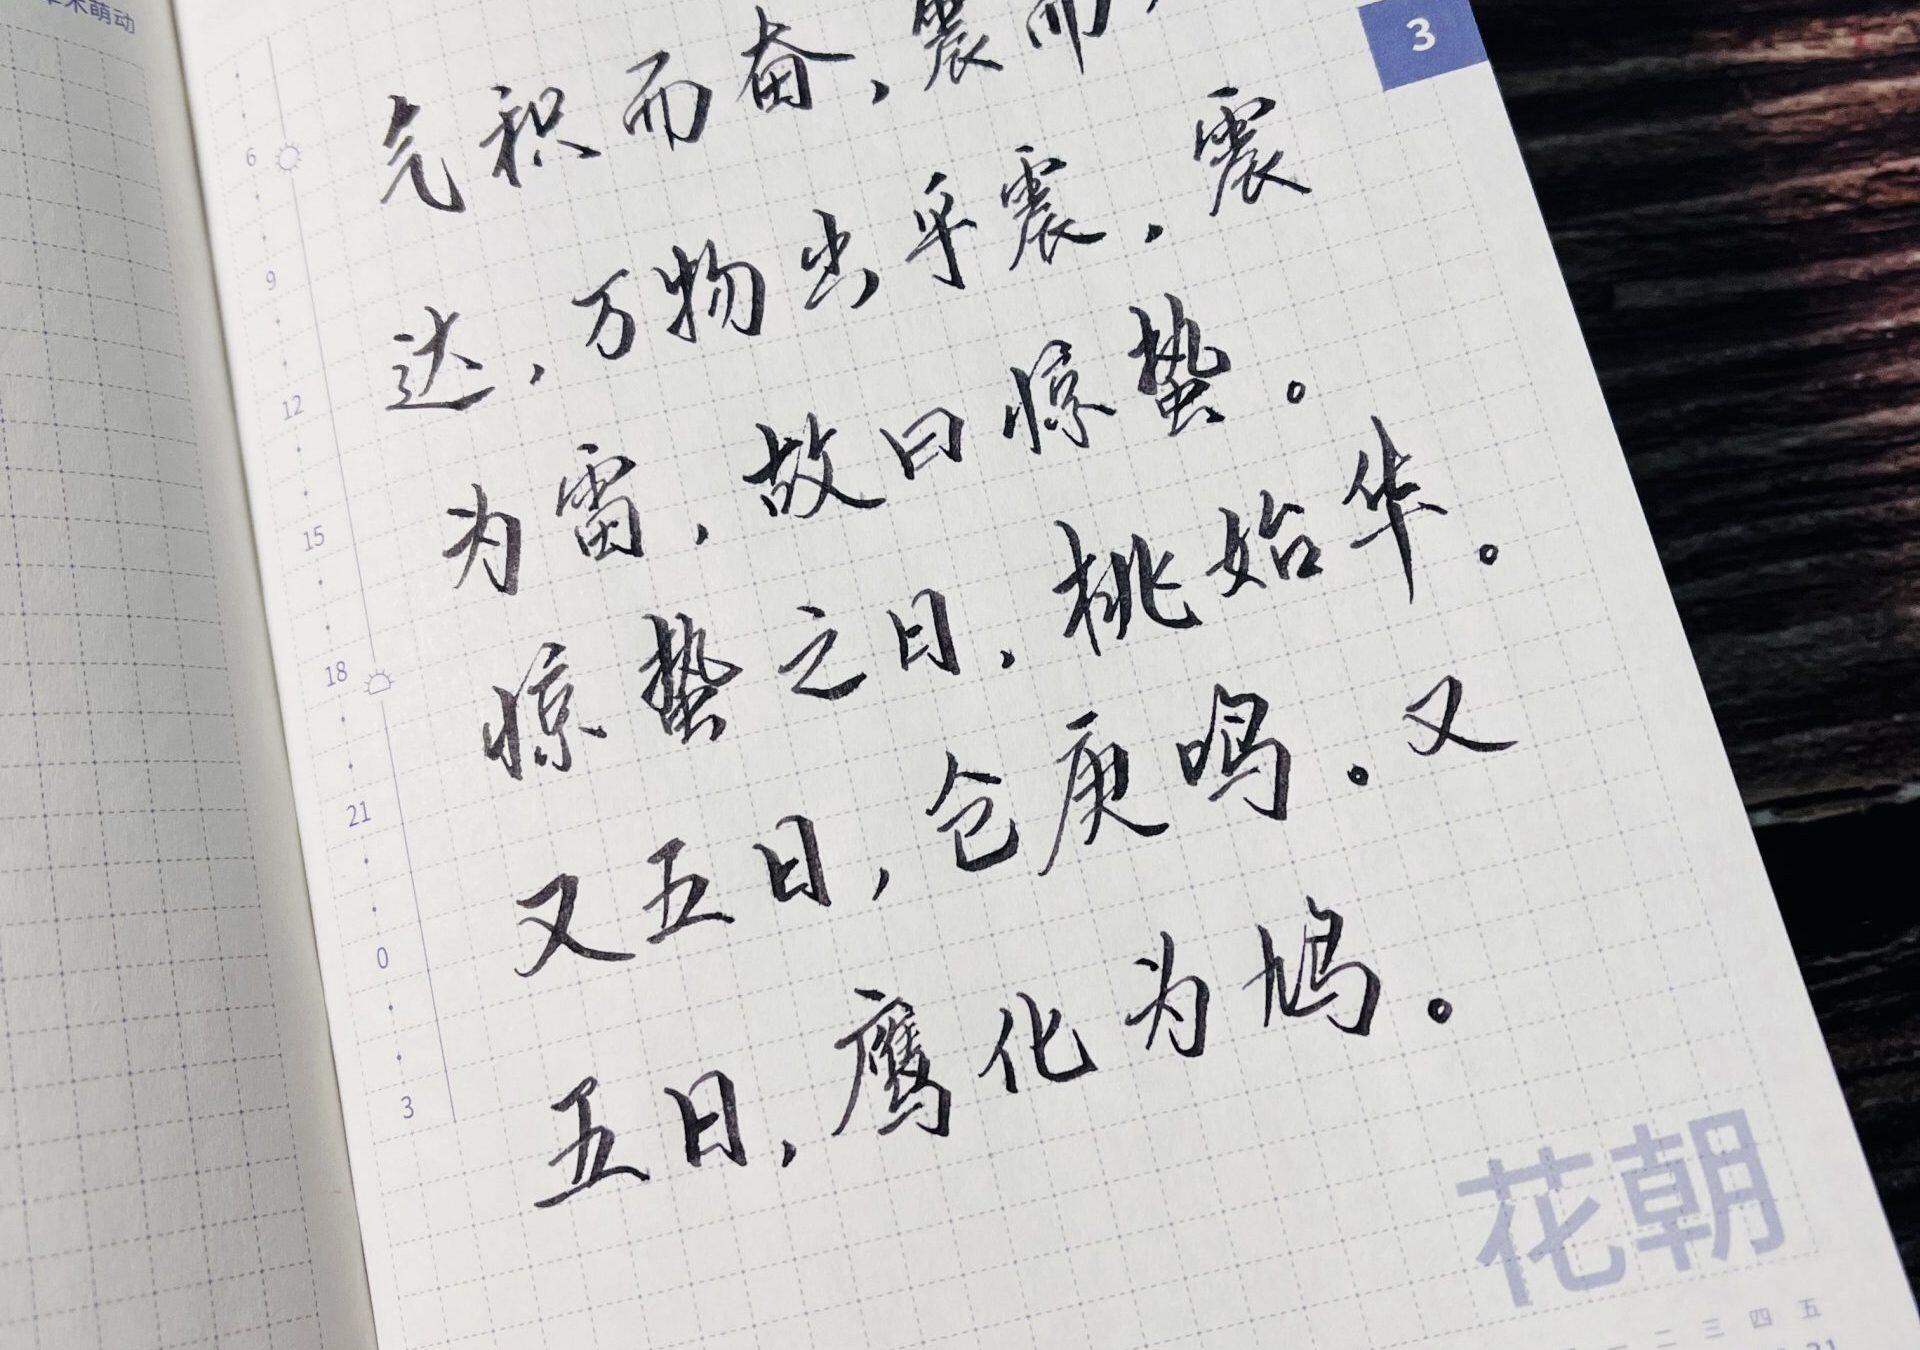 草木萌动
3
气积而奋，震而
达，万物出乎震，震
为雷，故曰惊蛰。
惊蛰之日，桃始华。
又五日，仓庚鸣。又
五日，鹰化为鸠。
6
9
12
15
18
21
0
3
花朝
二 三 四 五
21